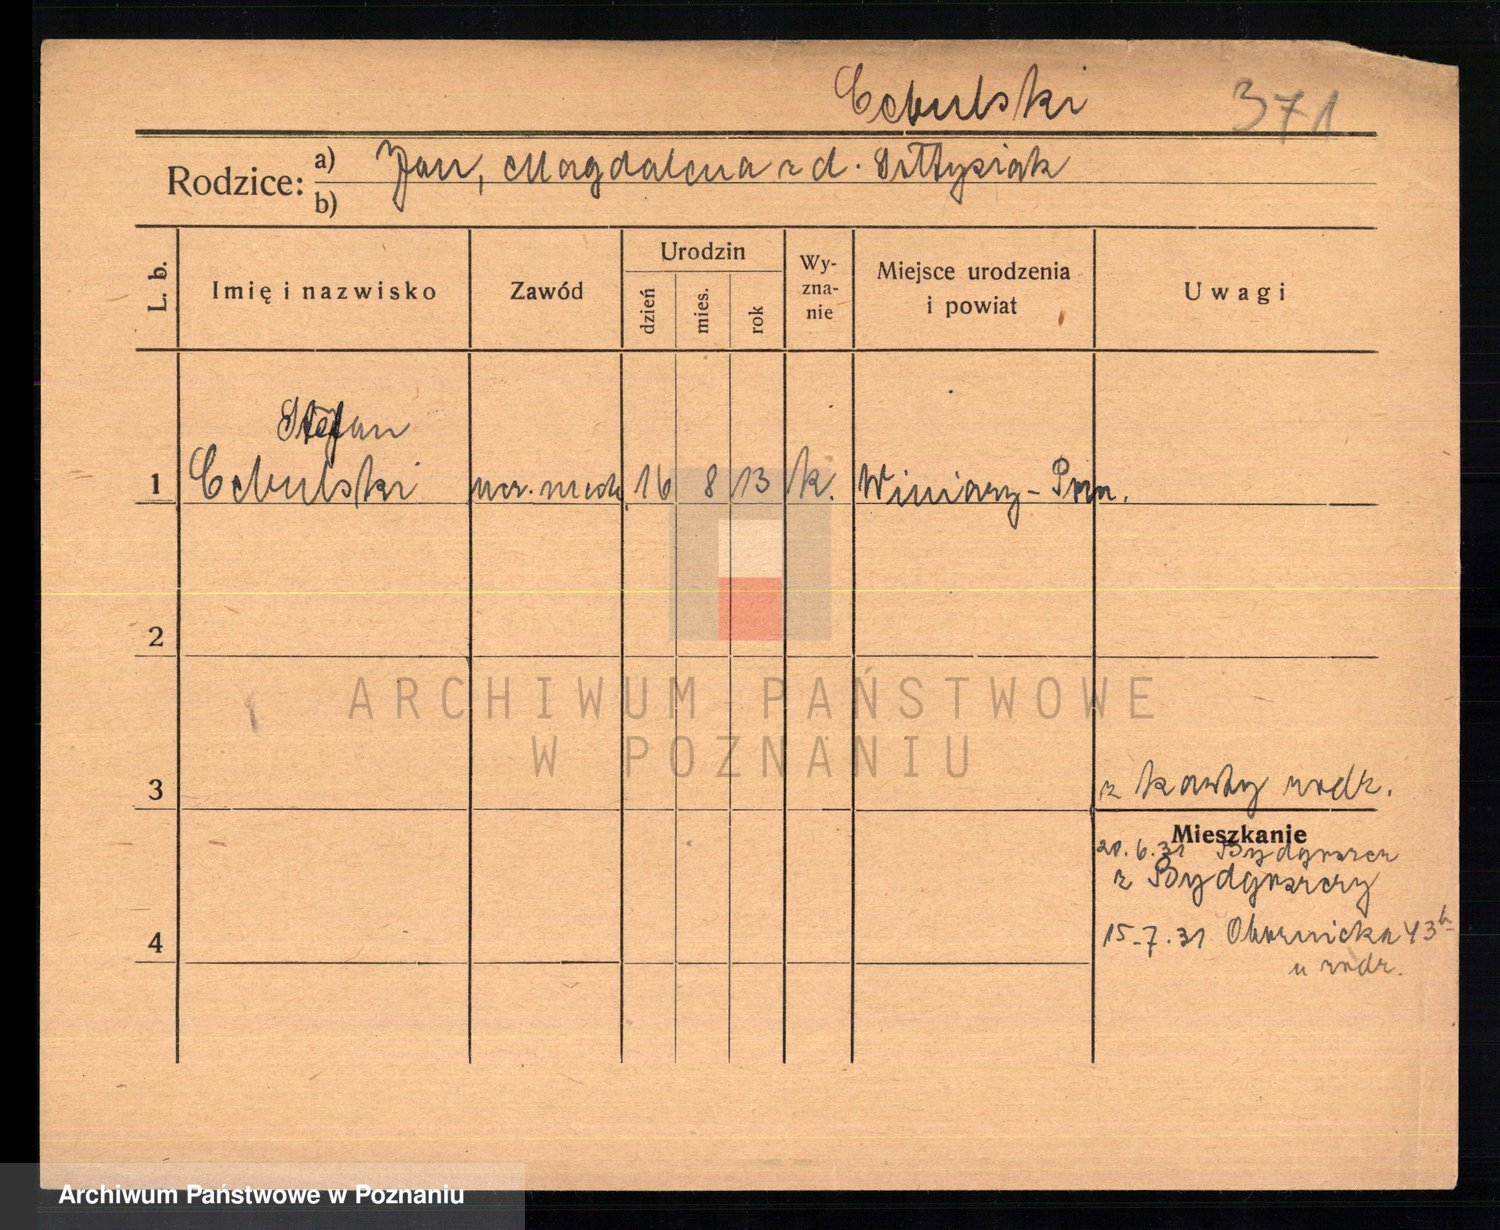 Cebulski 371
Rodzice: a) Jan, Magdalena z d. Sołtysiak
b)
L. b.
Imię i nazwisko
Zawód
Urodzin
dzień
mies.
rok
Wy-
zna-
nie
Miejsce urodzenia
i powiat
Uwagi
Stefan
1 Cebulski ucz. mech. 16 8 13 k. Winiary - Pozn.
2
ARCHIWUM PAŃSTWOWE
W POZNANIU
3 z karty rodz.
Mieszkanie
20.6.31 Bydgoszcz
z Bydgoszczy
4 15.7.31 Obornicka 43b
u rodz.
Archiwum Państwowe w Poznaniu